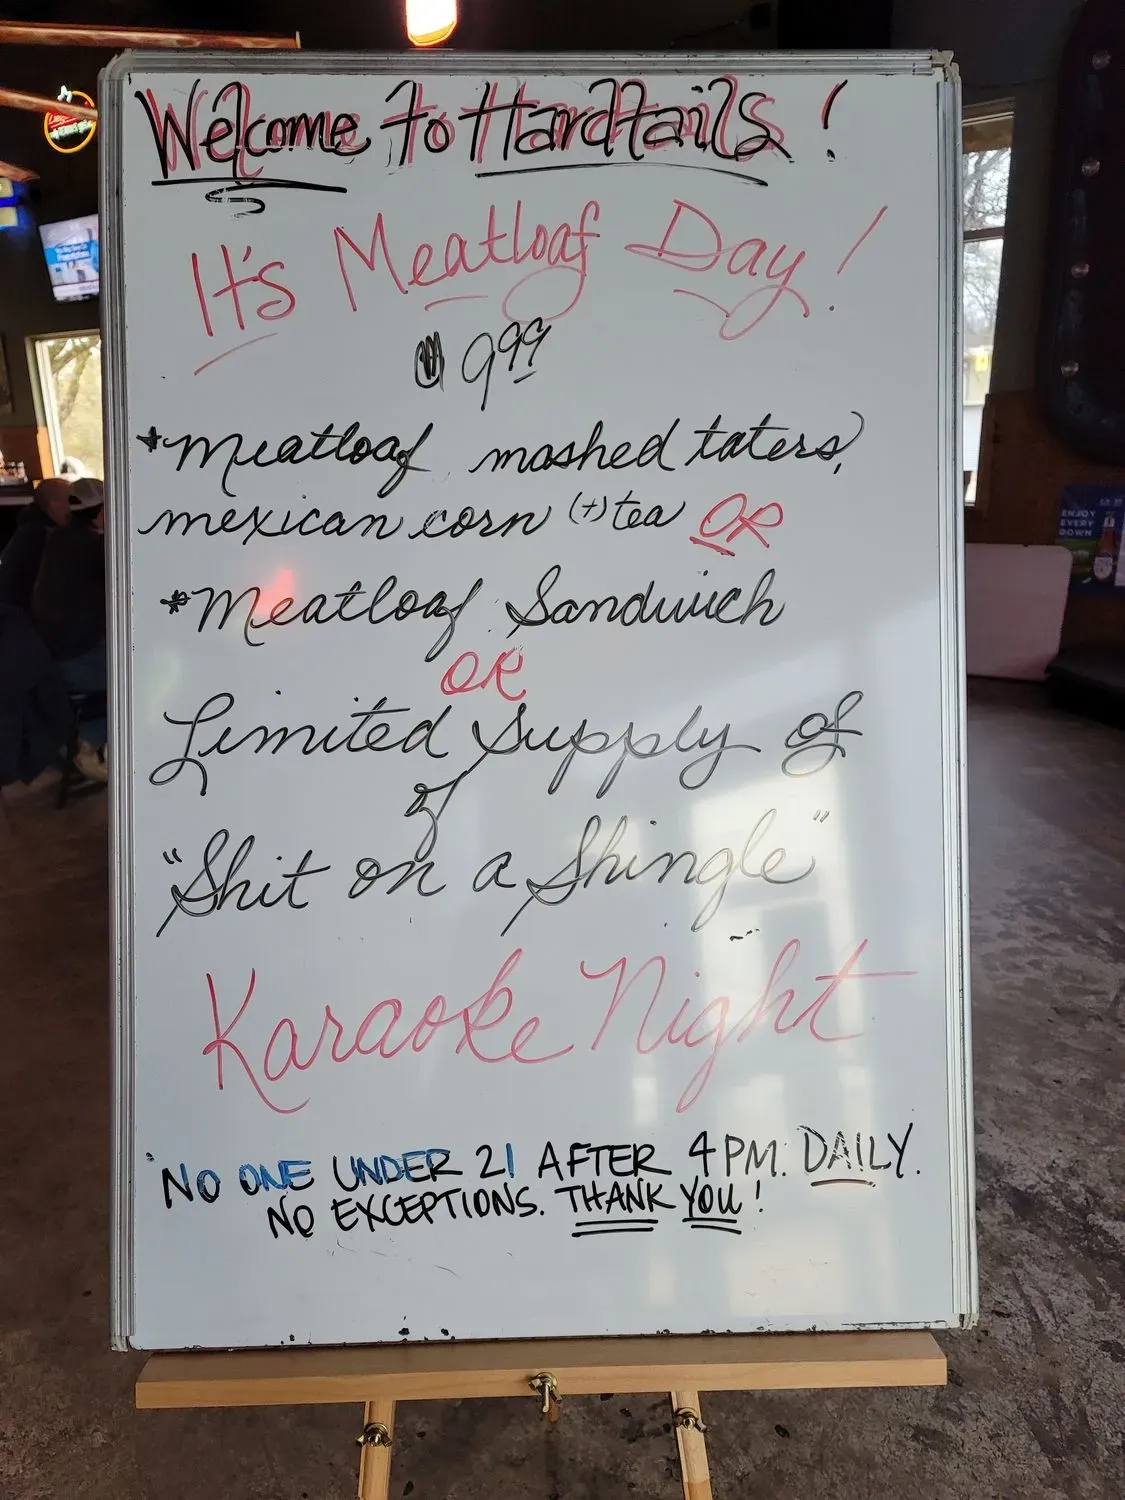 Welcome to Hardtails!
It's Meatloaf Day!
9.99
*Meatloaf mashed taters,
mexican corn (+) tea OR
*Meatloaf Sandwich
OR
Limited Supply of
of
"Shit on a Shingle"
Karaoke Night
NO ONE UNDER 21 AFTER 4PM. DAILY.
NO EXCEPTIONS. THANK YOU!
ENJOY
EVERY
DOWN